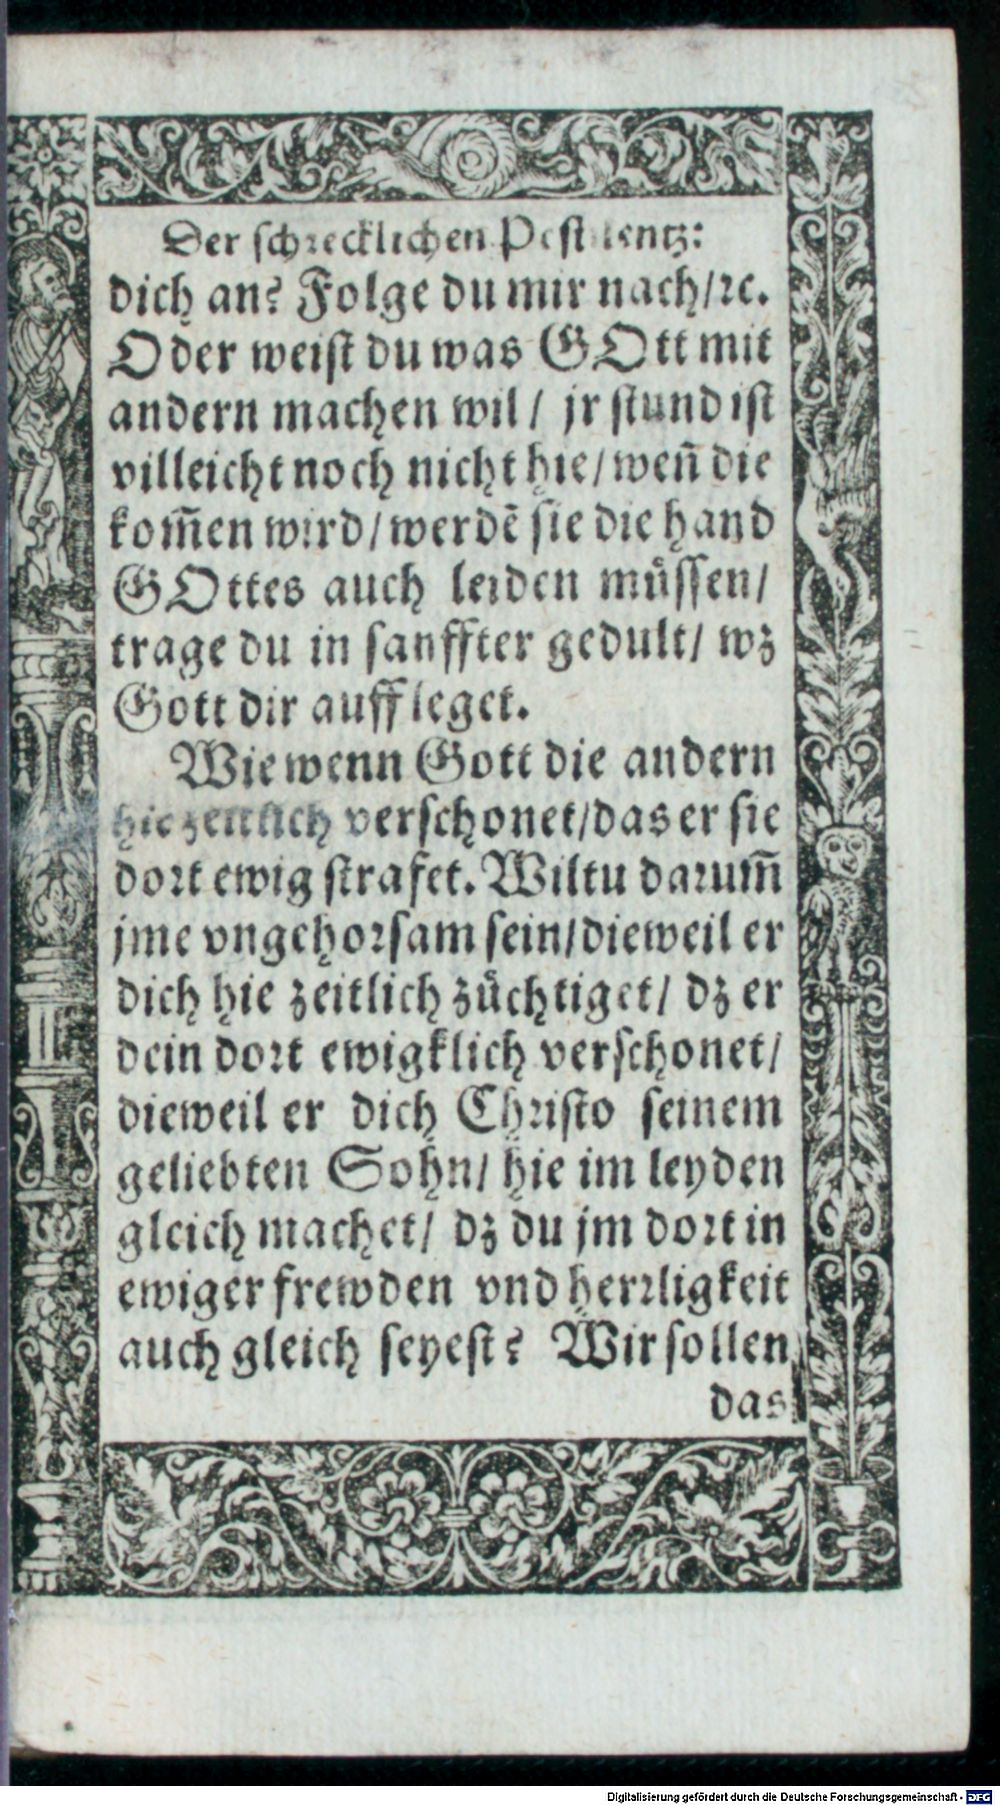 Der schrecklichen Pestilentz:
dich an? Folge du mir nach/ꝛc.
Oder weist du was GOtt mit
andern machen wil/ jr stund ist
villeicht noch nicht hie/ weñ die
kom̃en wird/ werdẽ sie die hand
GOttes auch leiden müssen/
trage du in sanffter gedult/ wz
Gott dir auffleget.
Wie wenn Gott die andern
hie zeitlich verschonet/ das er sie
dort ewig strafet. Wiltu darum̃
jme vngehorsam sein/ dieweil er
dich hie zeitlich züchtiget/ dz er
dein dort ewigklich verschonet/
dieweil er dich Christo seinem
geliebten Sohn/ hie im leyden
gleich machet/ dz du jm dort in
ewiger frewden vnd herrligkeit
auch gleich seyest? Wir sollen
das
Digitalisierung gefördert durch die Deutsche Forschungsgemeinschaft - DFG